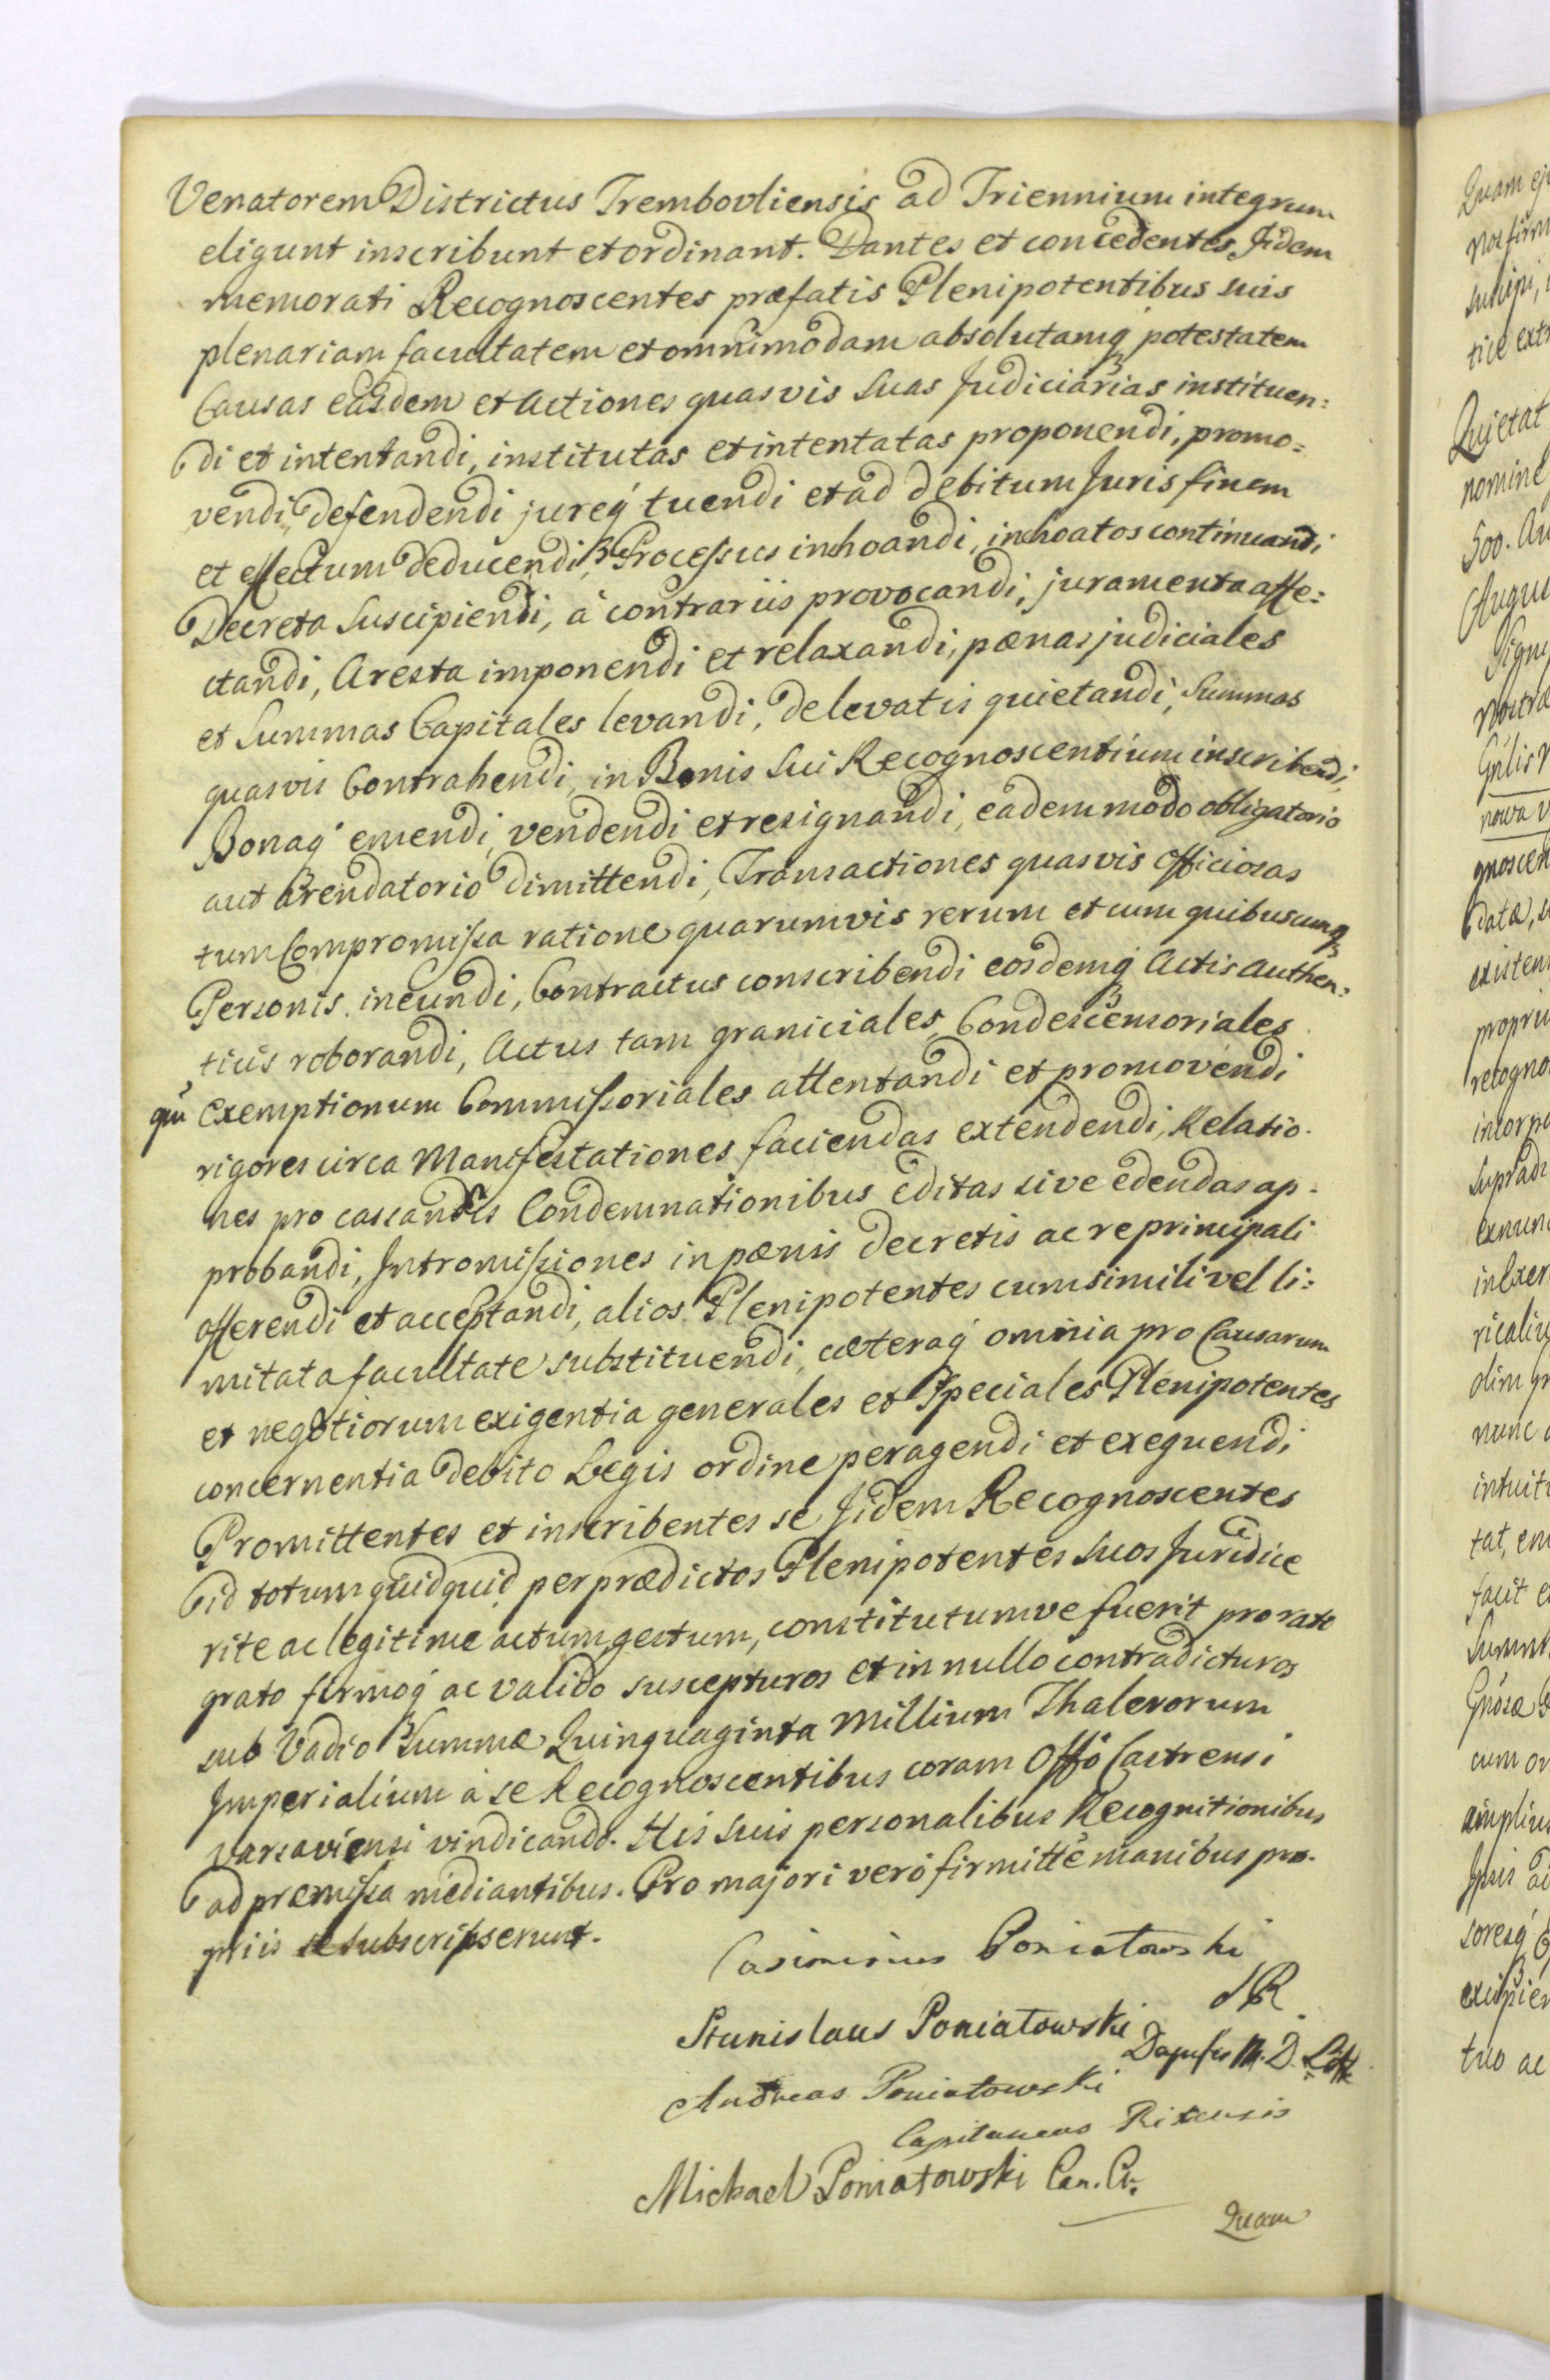 Venatorem Districtus Trembovliensis ad Triennium integrum
eligunt inscribunt et ordinant. Dantes et concedentes Jidem
memorati Recognoscentes præfatis Plenipotentibus suis
plenariam facultatem et omnimodam absolutamq́ potestatem
Causas easdem et Actiones quasvis suas Judiciarias instituen=
di et intentandi, institutas et intentatas proponendi, promo=
vendi, defendendi jureq́ tuendi et ad debitum Juris finem
et effectum deducendi, Processus inhoandi, inhoatos continuandi
Decreta suscipiendi, à contrariis provocandi, juramenta affe=
ctandi, Aresta imponendi et relaxandi, pænas judiciales
et Summas Capitales levandi, de levatis quietandi, Summas
quasvis Contrahendi, in Bonis sui Recognoscentium inscribendi,
Bonaq́ emendi, vendendi et resignandi, eadem modo obligatorio
aut Arendatorio dimittendi, Transactiones quasvis officiosas
tum Compromissa ratione quarumvis rerum et cum quibuscunq́
Personis ineundi, Contractus conscribendi eosdemq́ Actis Authen=
ticis roborandi, Actus tam graniciales, Condescensoriales
qũ exemptionum Commissoriales attentandi et promovendi
rigores circa Manifestationes faciendas extendendi, Relatio-
nes pro cassandis Condemnationibus editas sive edendas ap-
probandi, Intromissiones in pænis decretis ac re principali
offerendi et acceptandi, alios Plenipotentes cum simili vel li=
mitata facultate substituendi, cæteraq́ omnia pro Causarum
et negotiorum exigentia generales et Speciales Plenipotentes
concernentia debito Legis ordine peragendi et exequendi
Promittentes et inscribentes se Jidem Recognoscentes
id totum quidquid per prædictos Plenipotentes suos Juridice
rite ac legitime actum, gestum, constitutumve fuerit pro rato
grato firmoq́ ac valido suscepturos et in nullo contradicturos
sub Vadio Summæ Quinquaginta Millium Thalerorum
Imperialium à se Recognoscentibus coram Offo Castrensi
Varsaviensi vindicando. His suis personalibus Recognitionibus
ad præmissa mediantibus. Pro majori vero firmitte manibus pro-
priis se subscripserunt.
Casimirus Poniatowski
Stanislaus Poniatowski
Dapifer M. D. Litt
Andreas Poniatowski
Capitaneus Ritensis
Michael Poniatowski Can. Cr.
Quam